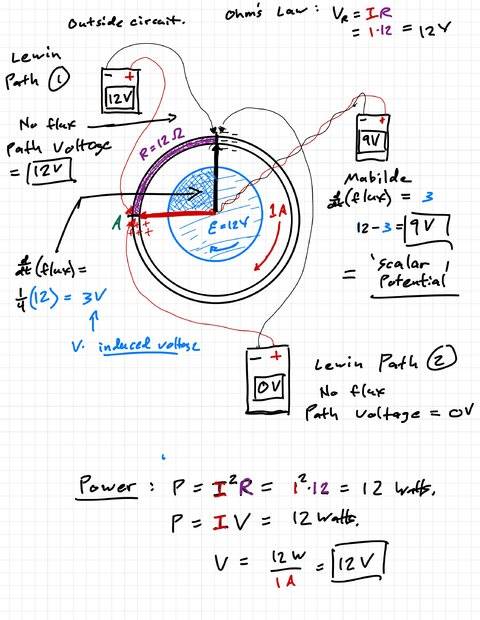 Outside circuit.
Ohm's Law: V_R = IR
= 1·12 = 12V
Lewin
Path ①
- +
12V
No flux
Path Voltage
= 12V
R = 12Ω
- +
9V
Mabilde
d/dt (flux) = 3
12 - 3 = 9V
= 'scalar potential'
A
+++
+++
1A
E = 12V
d/dt (flux) =
1/4 (12) = 3V
V. induced voltage
- +
0V
Lewin Path ②
No flux
Path Voltage = 0V
Power: P = I²R = 1²·12 = 12 Watts.
P = IV = 12 Watts.
V = 12W/1A = 12V